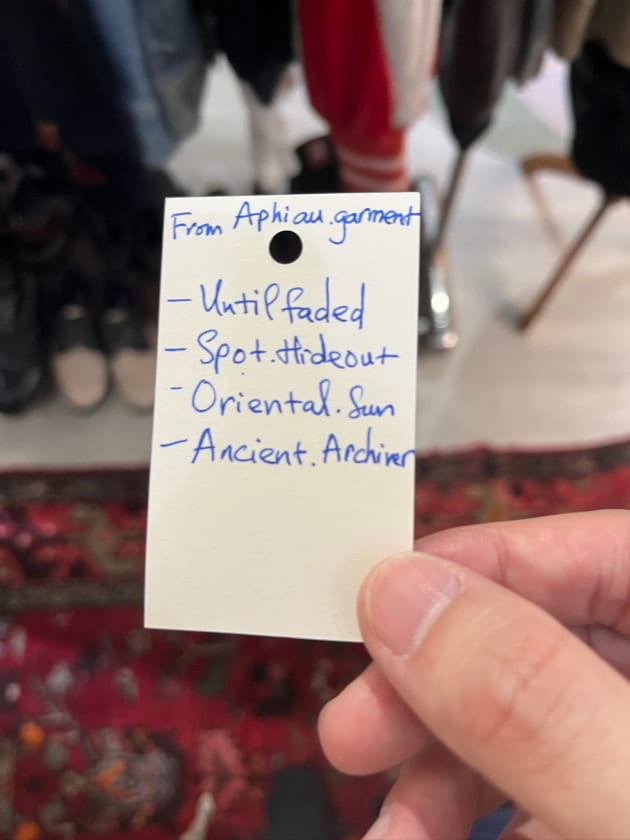 From Aphiau.garment
- Untilfaded
- Spot.Hideout
- Oriental.Sun
- Ancient.Archiver